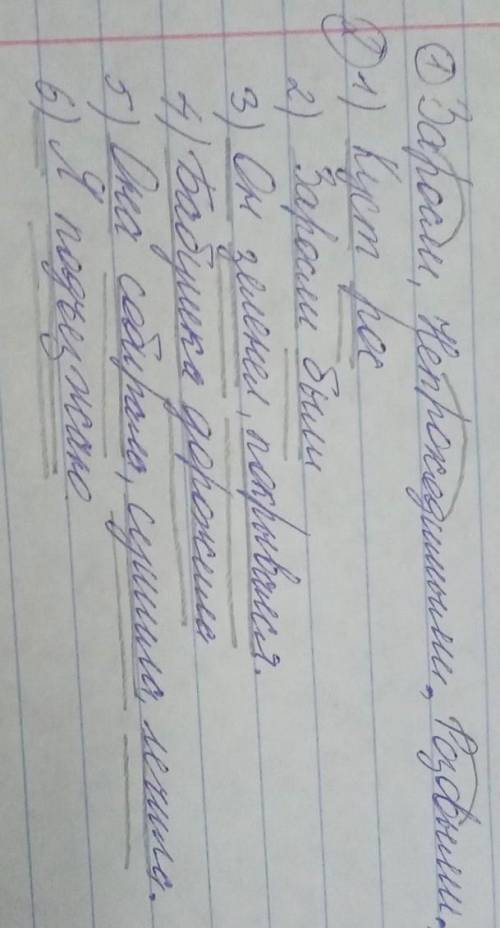 ① Заросли, Непроходимыми, Розовыми,
② 1) Куст рос
2) Заросли были
3) Он зеленел, покрывался.
4) Бабушка дорожила
5) Она собирала, сушила, лечила.
6) Я подъезжаю